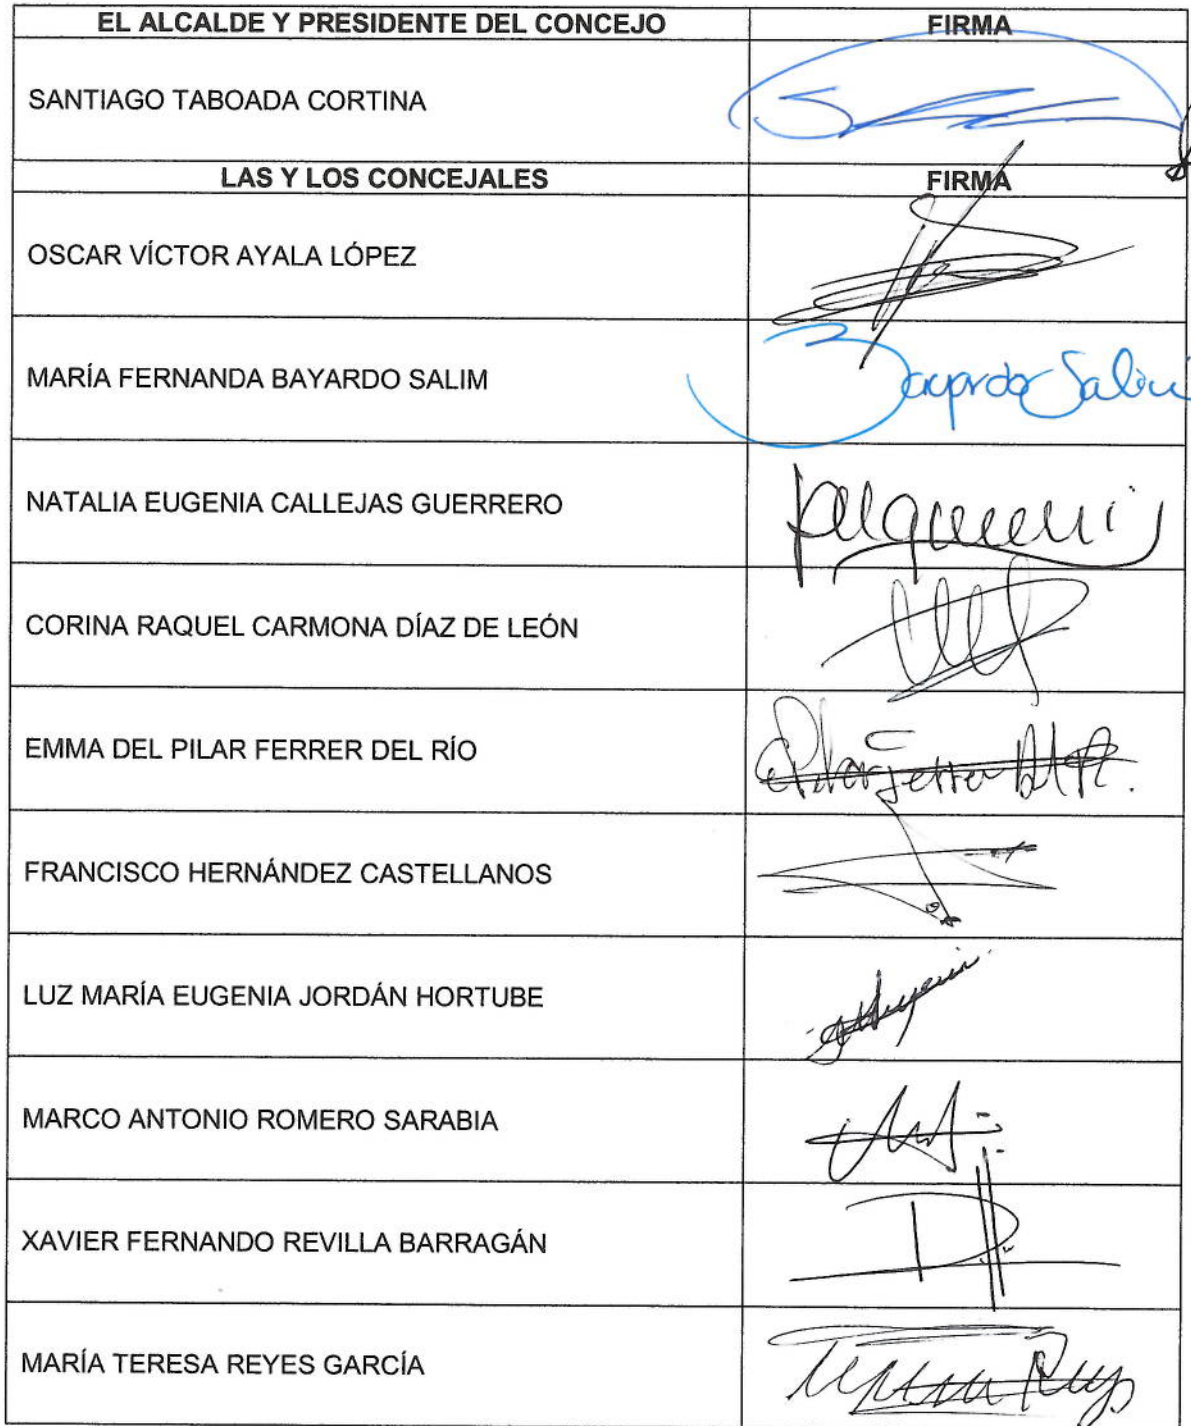 EL ALCALDE Y PRESIDENTE DEL CONCEJO FIRMA
SANTIAGO TABOADA CORTINA
LAS Y LOS CONCEJALES FIRMA
OSCAR VÍCTOR AYALA LÓPEZ
MARÍA FERNANDA BAYARDO SALIM Bayardo Salim
NATALIA EUGENIA CALLEJAS GUERRERO
CORINA RAQUEL CARMONA DÍAZ DE LEÓN
EMMA DEL PILAR FERRER DEL RÍO
FRANCISCO HERNÁNDEZ CASTELLANOS
LUZ MARÍA EUGENIA JORDÁN HORTUBE
MARCO ANTONIO ROMERO SARABIA
XAVIER FERNANDO REVILLA BARRAGÁN
MARÍA TERESA REYES GARCÍA